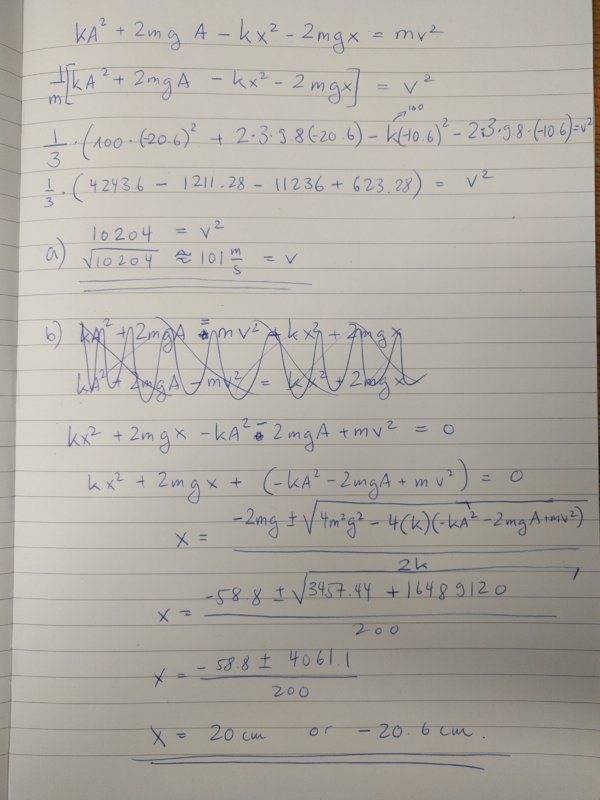 kA² + 2mg A - kx² - 2mgx = mv²
1/m [kA² + 2mgA - kx² - 2mgx] = v²
1/3 · (100·(-20.6)² + 2·3·9.8(-20.6) - k(-10.6)² - 2·3·9.8·(-10.6) = v²
100
1/3 · (42436 - 1211.28 - 11236 + 623.28) = v²
a) 10204 = v²
√10204 ≈ 101 m/s = v
b) kA² + 2mgA = mv² + kx² + 2mgx
kA² + 2mgA - mv² = kx² + 2mgx
kx² + 2mgx - kA² - 2mgA + mv² = 0
kx² + 2mgx + (-kA² - 2mgA + mv²) = 0
x = (-2mg ± √(4m²g² - 4(k)(-kA² - 2mgA + mv²))) / 2k
x = (-58.8 ± √(3457.44 + 16489120)) / 200
x = (-58.8 ± 4061.1) / 200
x = 20 cm or -20.6 cm.